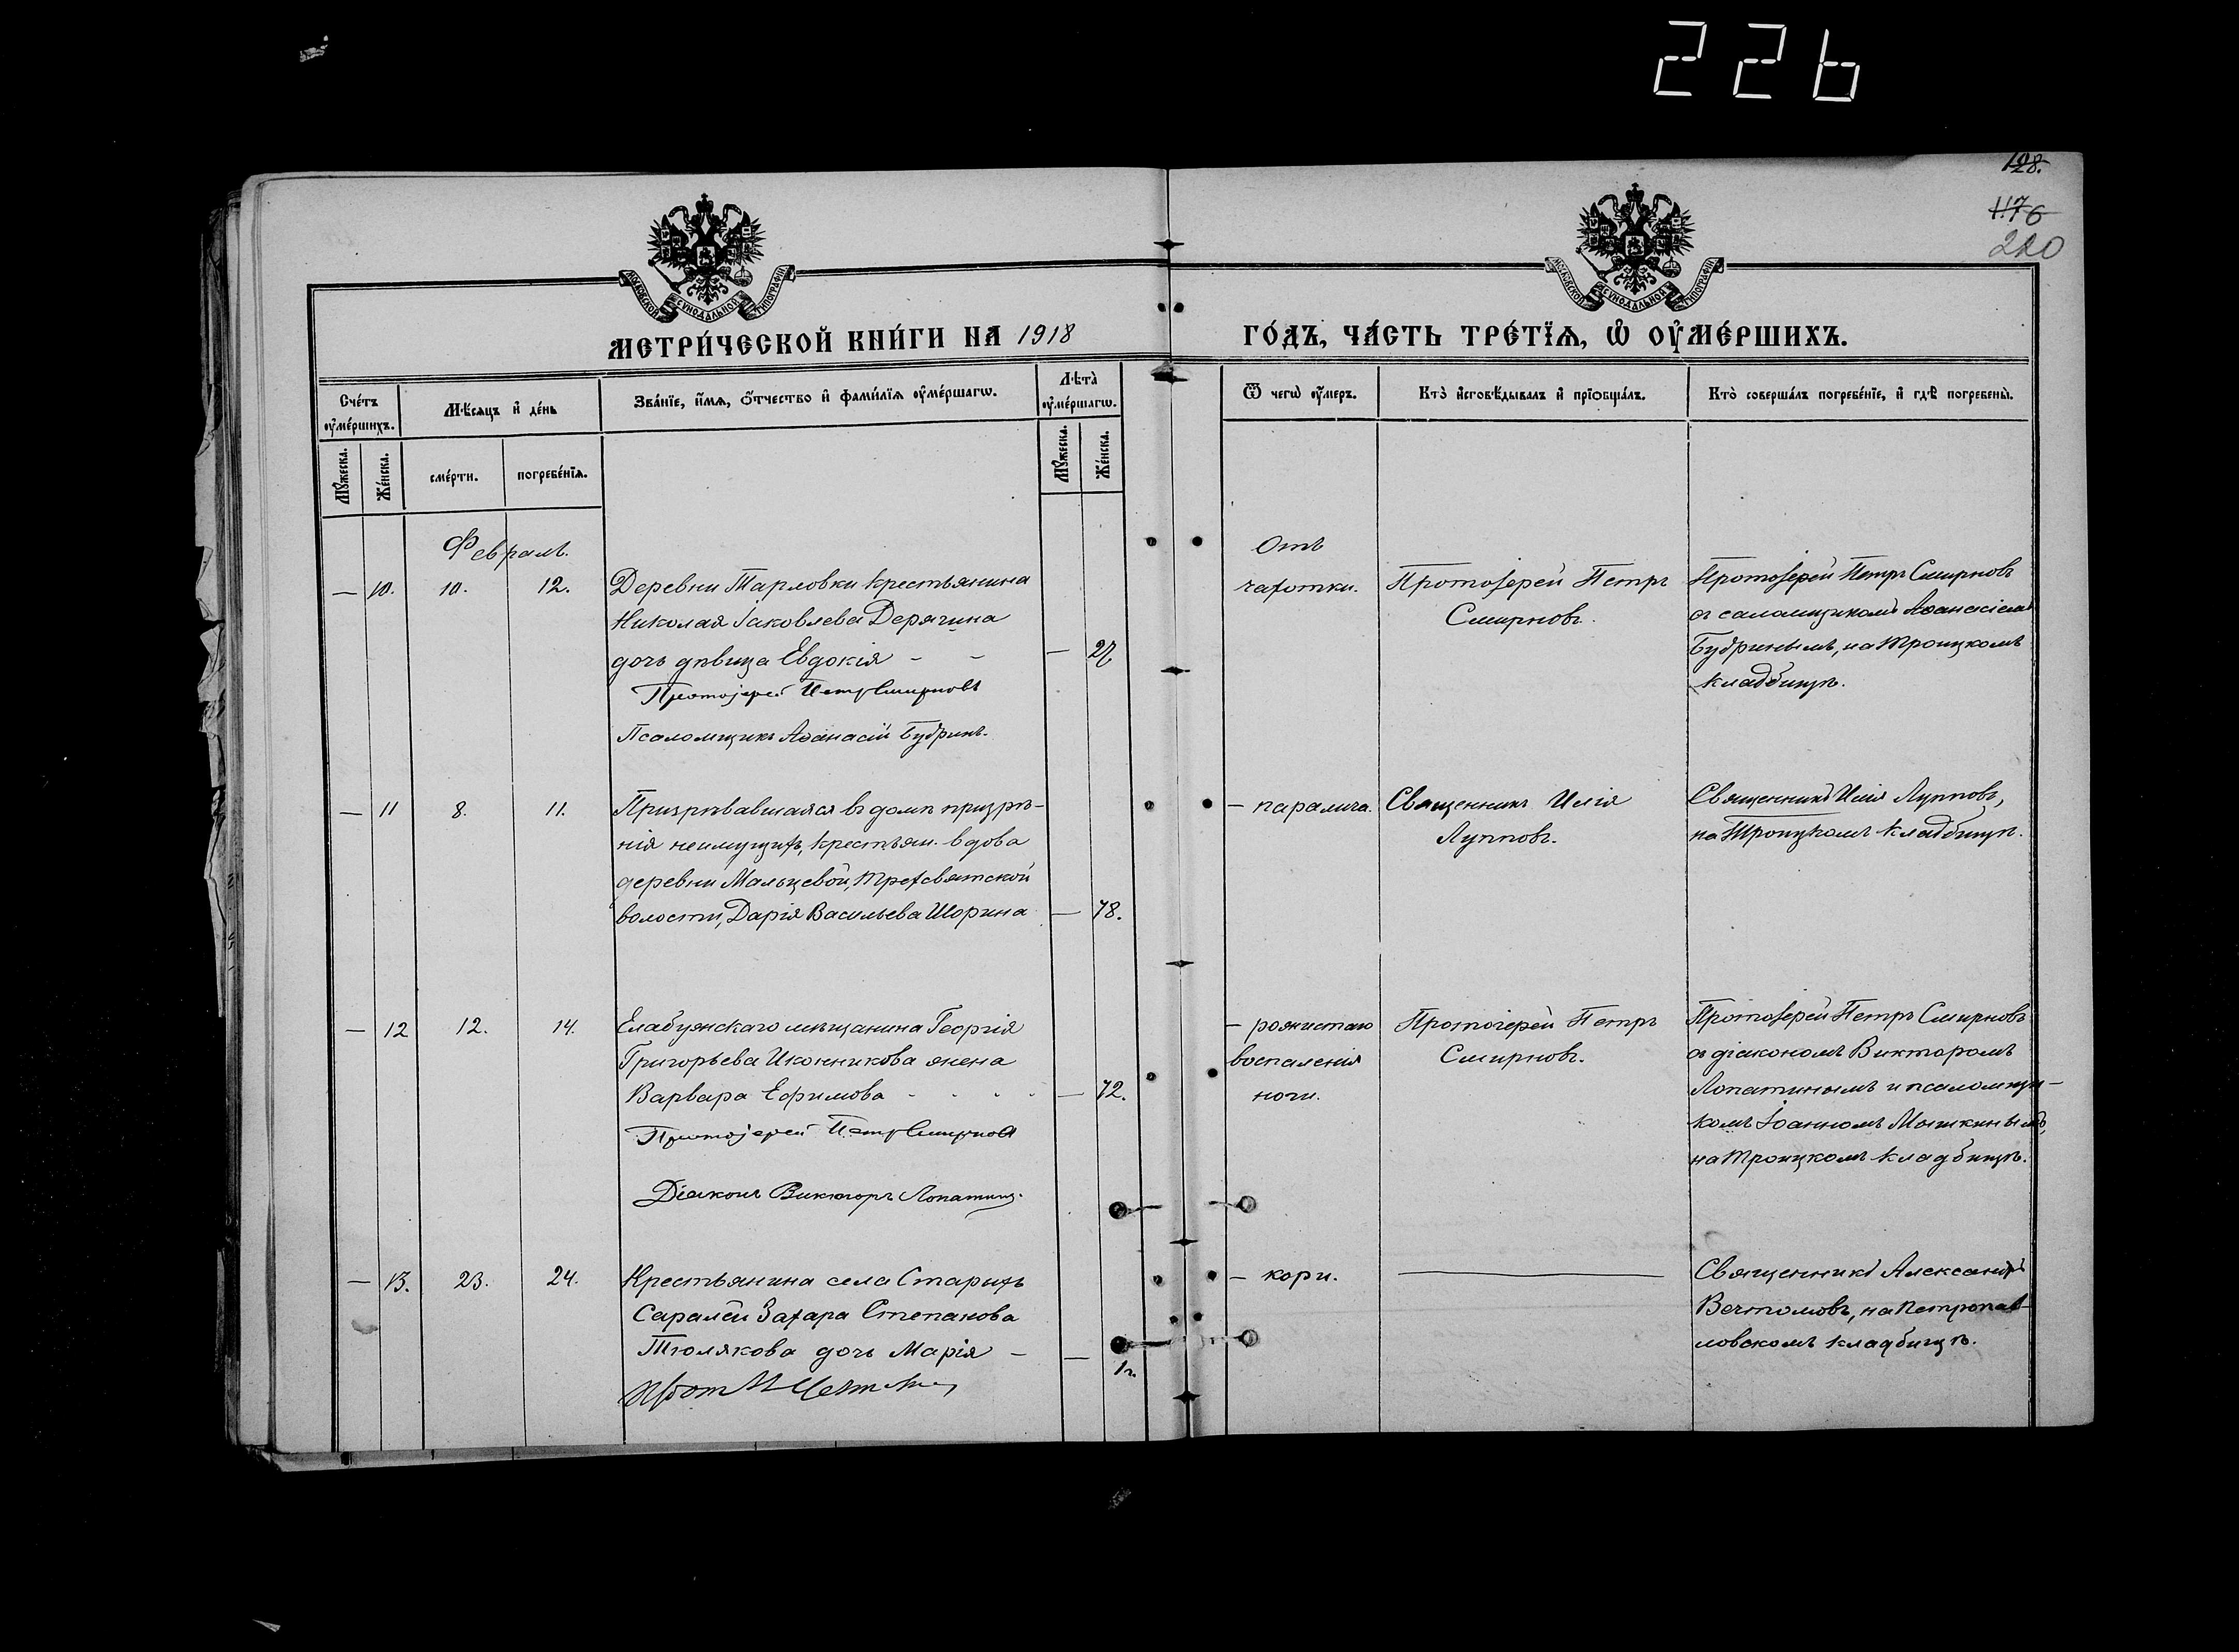 226
128.
1176
220
МОСКОВСКОЙ СУНОДАЛЬНОЙ ТИПОГРАФІИ
МОСКОВСКОЙ СУНОДАЛЬНОЙ ТИПОГРАФІИ
МЕТРИ́ЧЕСКОЙ КНИ́ГИ НА 1918 ГО́ДЪ, ЧА́СТЬ ТРЕ́ТЇѦ, Ѡ҆ ОУ҆МЕ́РШИХЪ.
Сче́тъ оу҆ме́ршихъ.
Мѣ́сѧцъ и҆ де́нь
Зва́нїе, и҆́мѧ, ѻ҆́тчество и҆ фами́лїѧ оу҆ме́ршагѡ.
Лѣ́та оу҆ме́ршагѡ.
Ѿ чегѡ̀ оу҆́меръ.
Кто̀ и҆сповѣ́дывалъ и҆ прїѡбща́лъ.
Кто̀ соверша́лъ погребе́нїе, и҆ гдѣ̀ погребены̀.
Мꙋ́жеска.
Же́нска.
сме́рти.
погребе́нїѧ.
Мꙋ́жеска.
Же́нска.
Февраль.
— 10. 10. 12.
Деревни Тарловки крестьянина
Николая Іаковлева Дерягина
дочь дѣвица Евдокія - - — 27
Протоіерей Петръ Смирновъ
Псаломщикъ Аѳанасій Бубринъ.
Отъ
чахотки.
Протоіерей Петръ
Смирновъ.
Протоіерей Петръ Смирновъ
съ саломщикомъ Аѳанасіемъ
Бубринымъ, на Троицкомъ
кладбищѣ.
— 11 8. 11.
Призрѣвавшаяся въ домѣ призрѣ-
нія неимущихъ, крестьян. вдова
деревни Мальцевой, Трехсвятской
волости, Дарія Васильева Шорина — 78.
— паралича.
Священникъ Илія
Лупповъ.
Священникъ Илія Лупповъ,
на Троицкомъ кладбищѣ.
— 12 12. 14.
Елабужскаго мѣщанина Георгія
Григорьева Иконникова жена
Варвара Ефимова - - - - — 72.
Протоіерей Петръ Смирновъ
Діаконъ Викторъ Лопатинъ.
— рожистаго
воспаленія
ноги.
Протоіерей Петръ
Смирновъ.
Протоіерей Петръ Смирновъ
съ діакономъ Викторомъ
Лопатинымъ и псаломщи-
комъ Іоанномъ Мышкинымъ,
на Троицкомъ кладбищѣ.
— 13. 23. 24.
Крестьянина села Старыхъ
Саралей Захара Степанова
Тюлякова дочь Марія — — 1г.
— кори.
Священникъ Александръ
Вечтомовъ, на Петропав-
ловскомъ кладбищѣ.